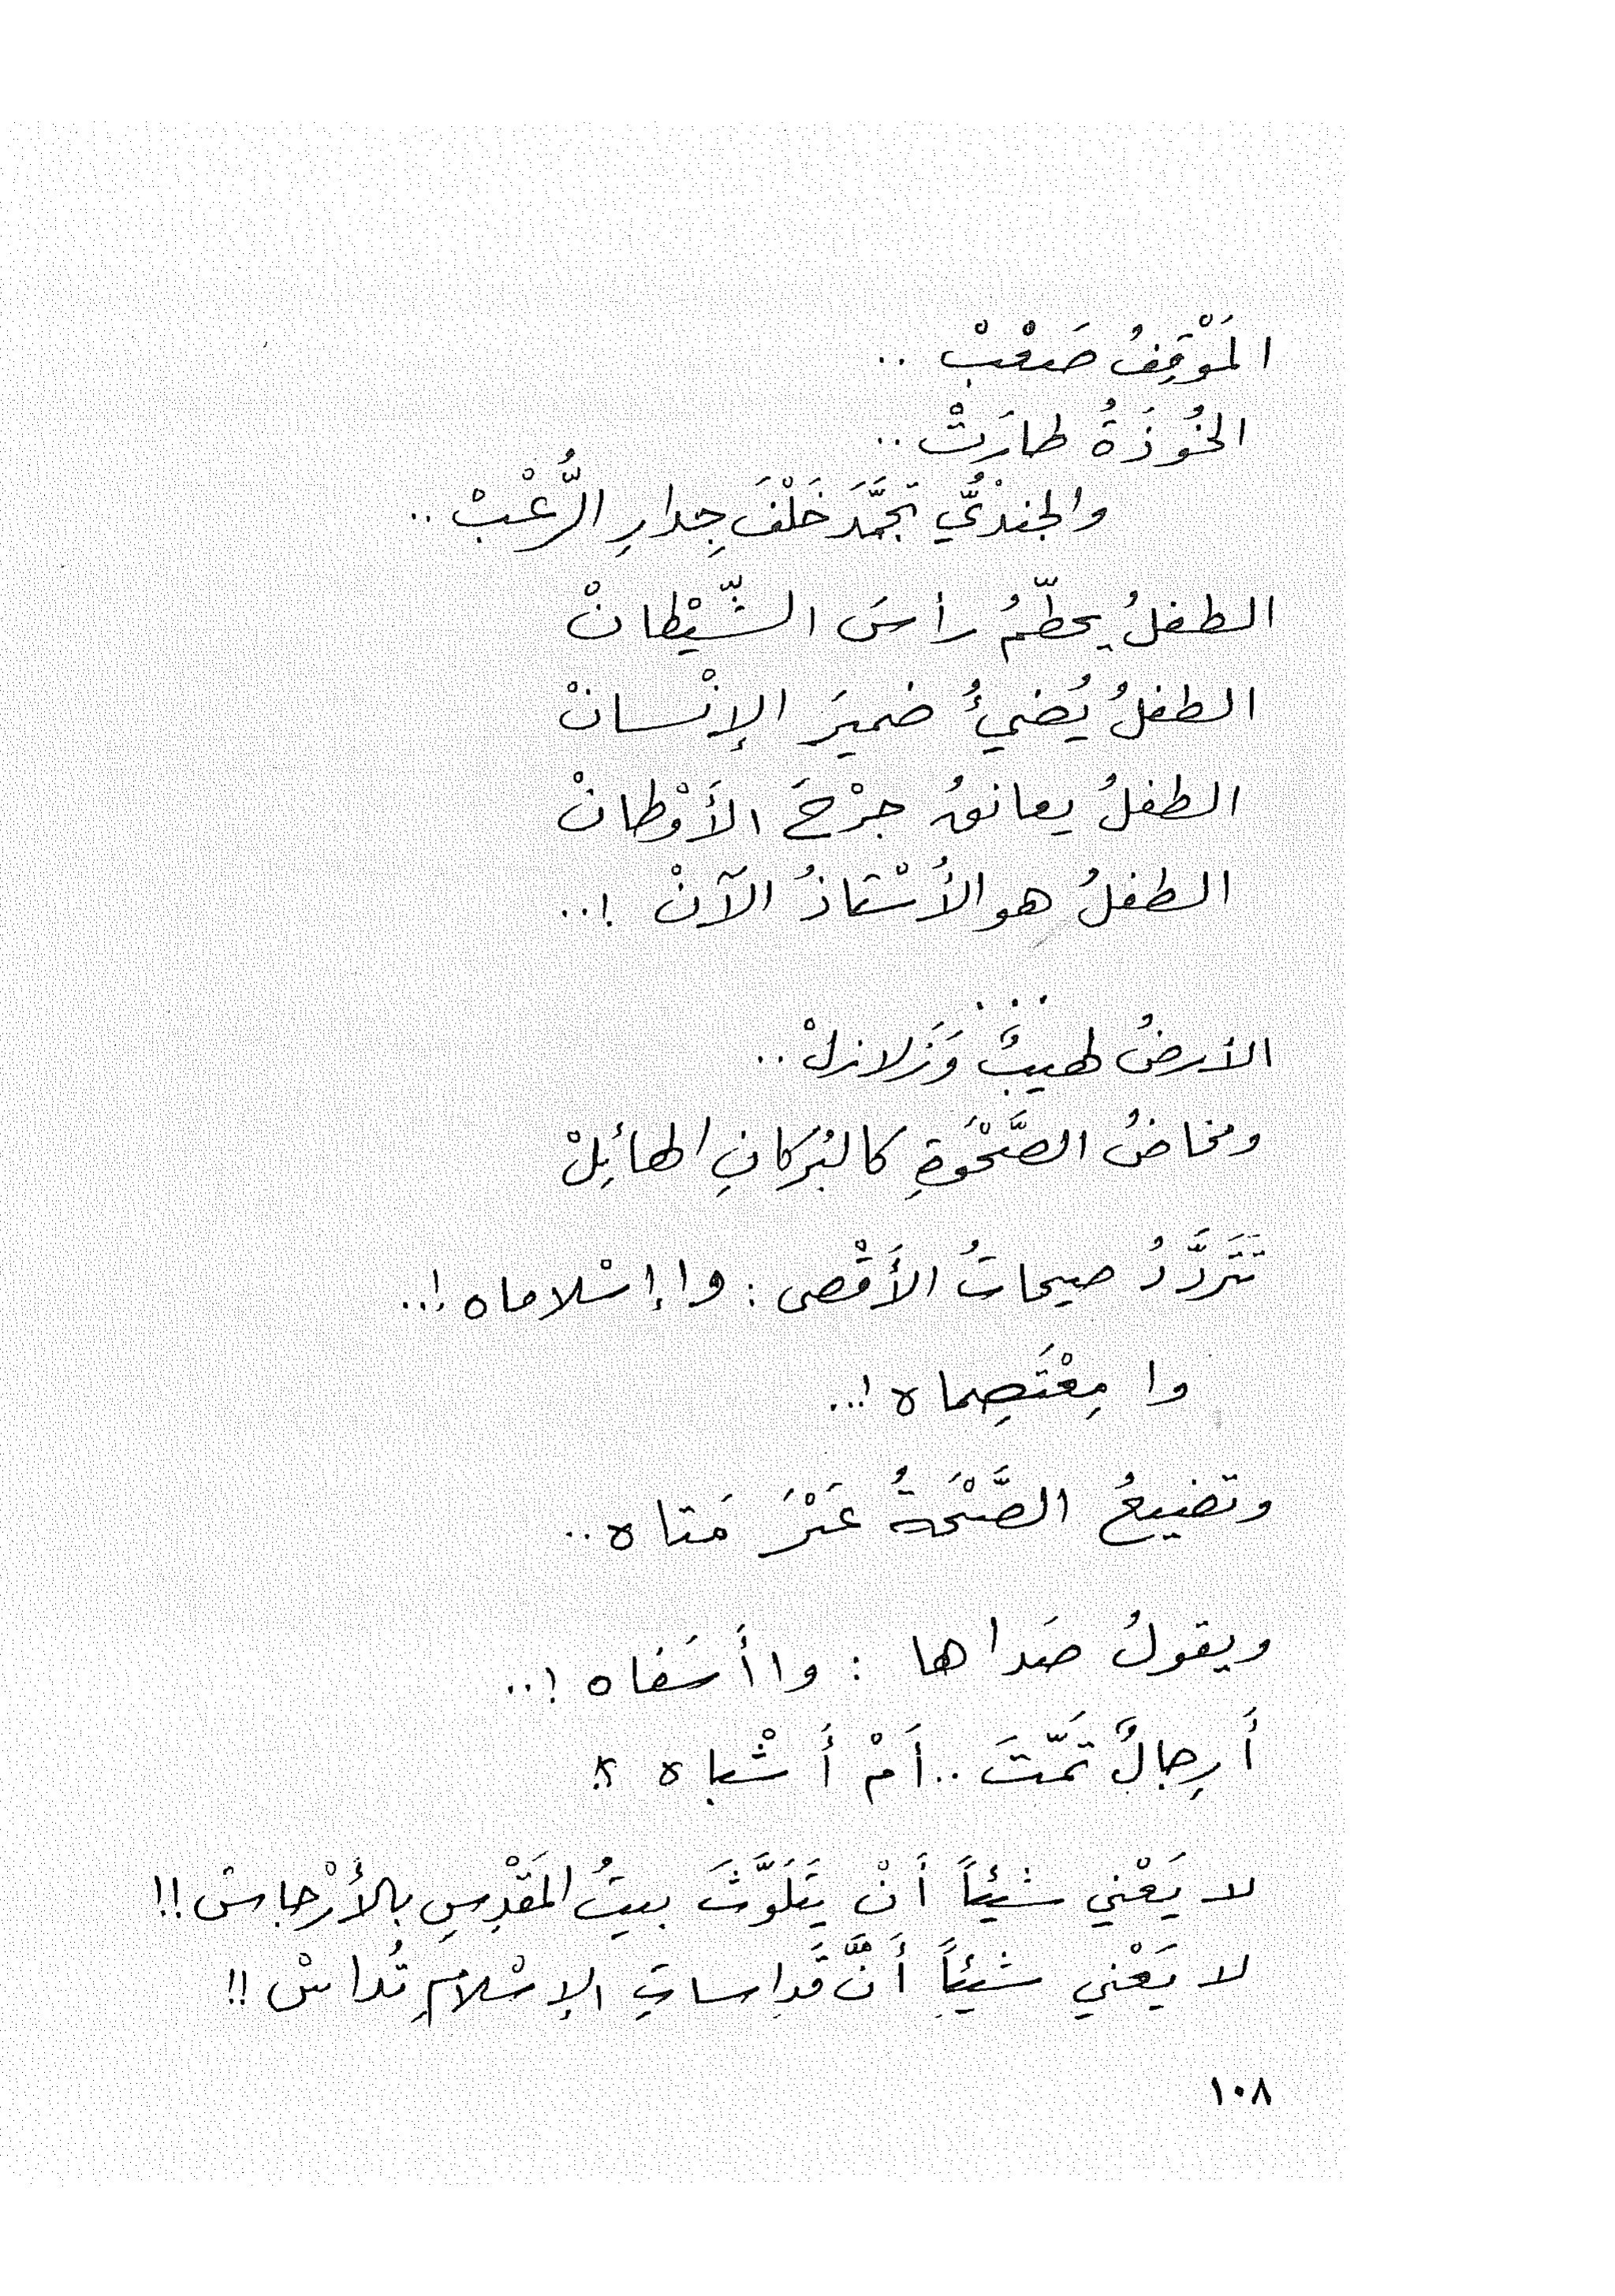 المَوْقِفُ صَعْبْ ..
الخُوذَةُ طارَتْ ..
والجنديُّ تجمَّدَ خَلْفَ جِدارِ الرُّعْبْ ..
الطفلُ يحطّمُ رأسَ الشّيْطانْ
الطفلُ يُضيءُ ضميرَ الإنْسانْ
الطفلُ يعانقُ جرْحَ الأَوْطانْ
الطفلُ هو الأُسْتاذُ الآنْ !..
. . .
الأرضُ لهيبٌ وَزَلازلْ ..
ومخاضُ الصَّحْوَةِ كالبُرَكانِ الهائِلْ
تَتَردَّدُ صيحاتُ الأَقْصى : وا إسْلاماه !..
وا مِعْتَصِماه !..
وتضيعُ الصَّيْحَةُ عَبْرَ مَتاه ..
ويقولُ صَداها : وا أَسَفاه !..
أَرِجالٌ تَمّتَ .. أَمْ أَشْباه ؟
لا يَعْني شيْئاً أَنْ يَتَلَوَّثَ بيتُ المَقْدِسِ بالأَرْجاسْ !!
لا يَعْني شيْئاً أَنَّ قَداساتِ الإسْلامِ تُداسْ !!
١٠٨